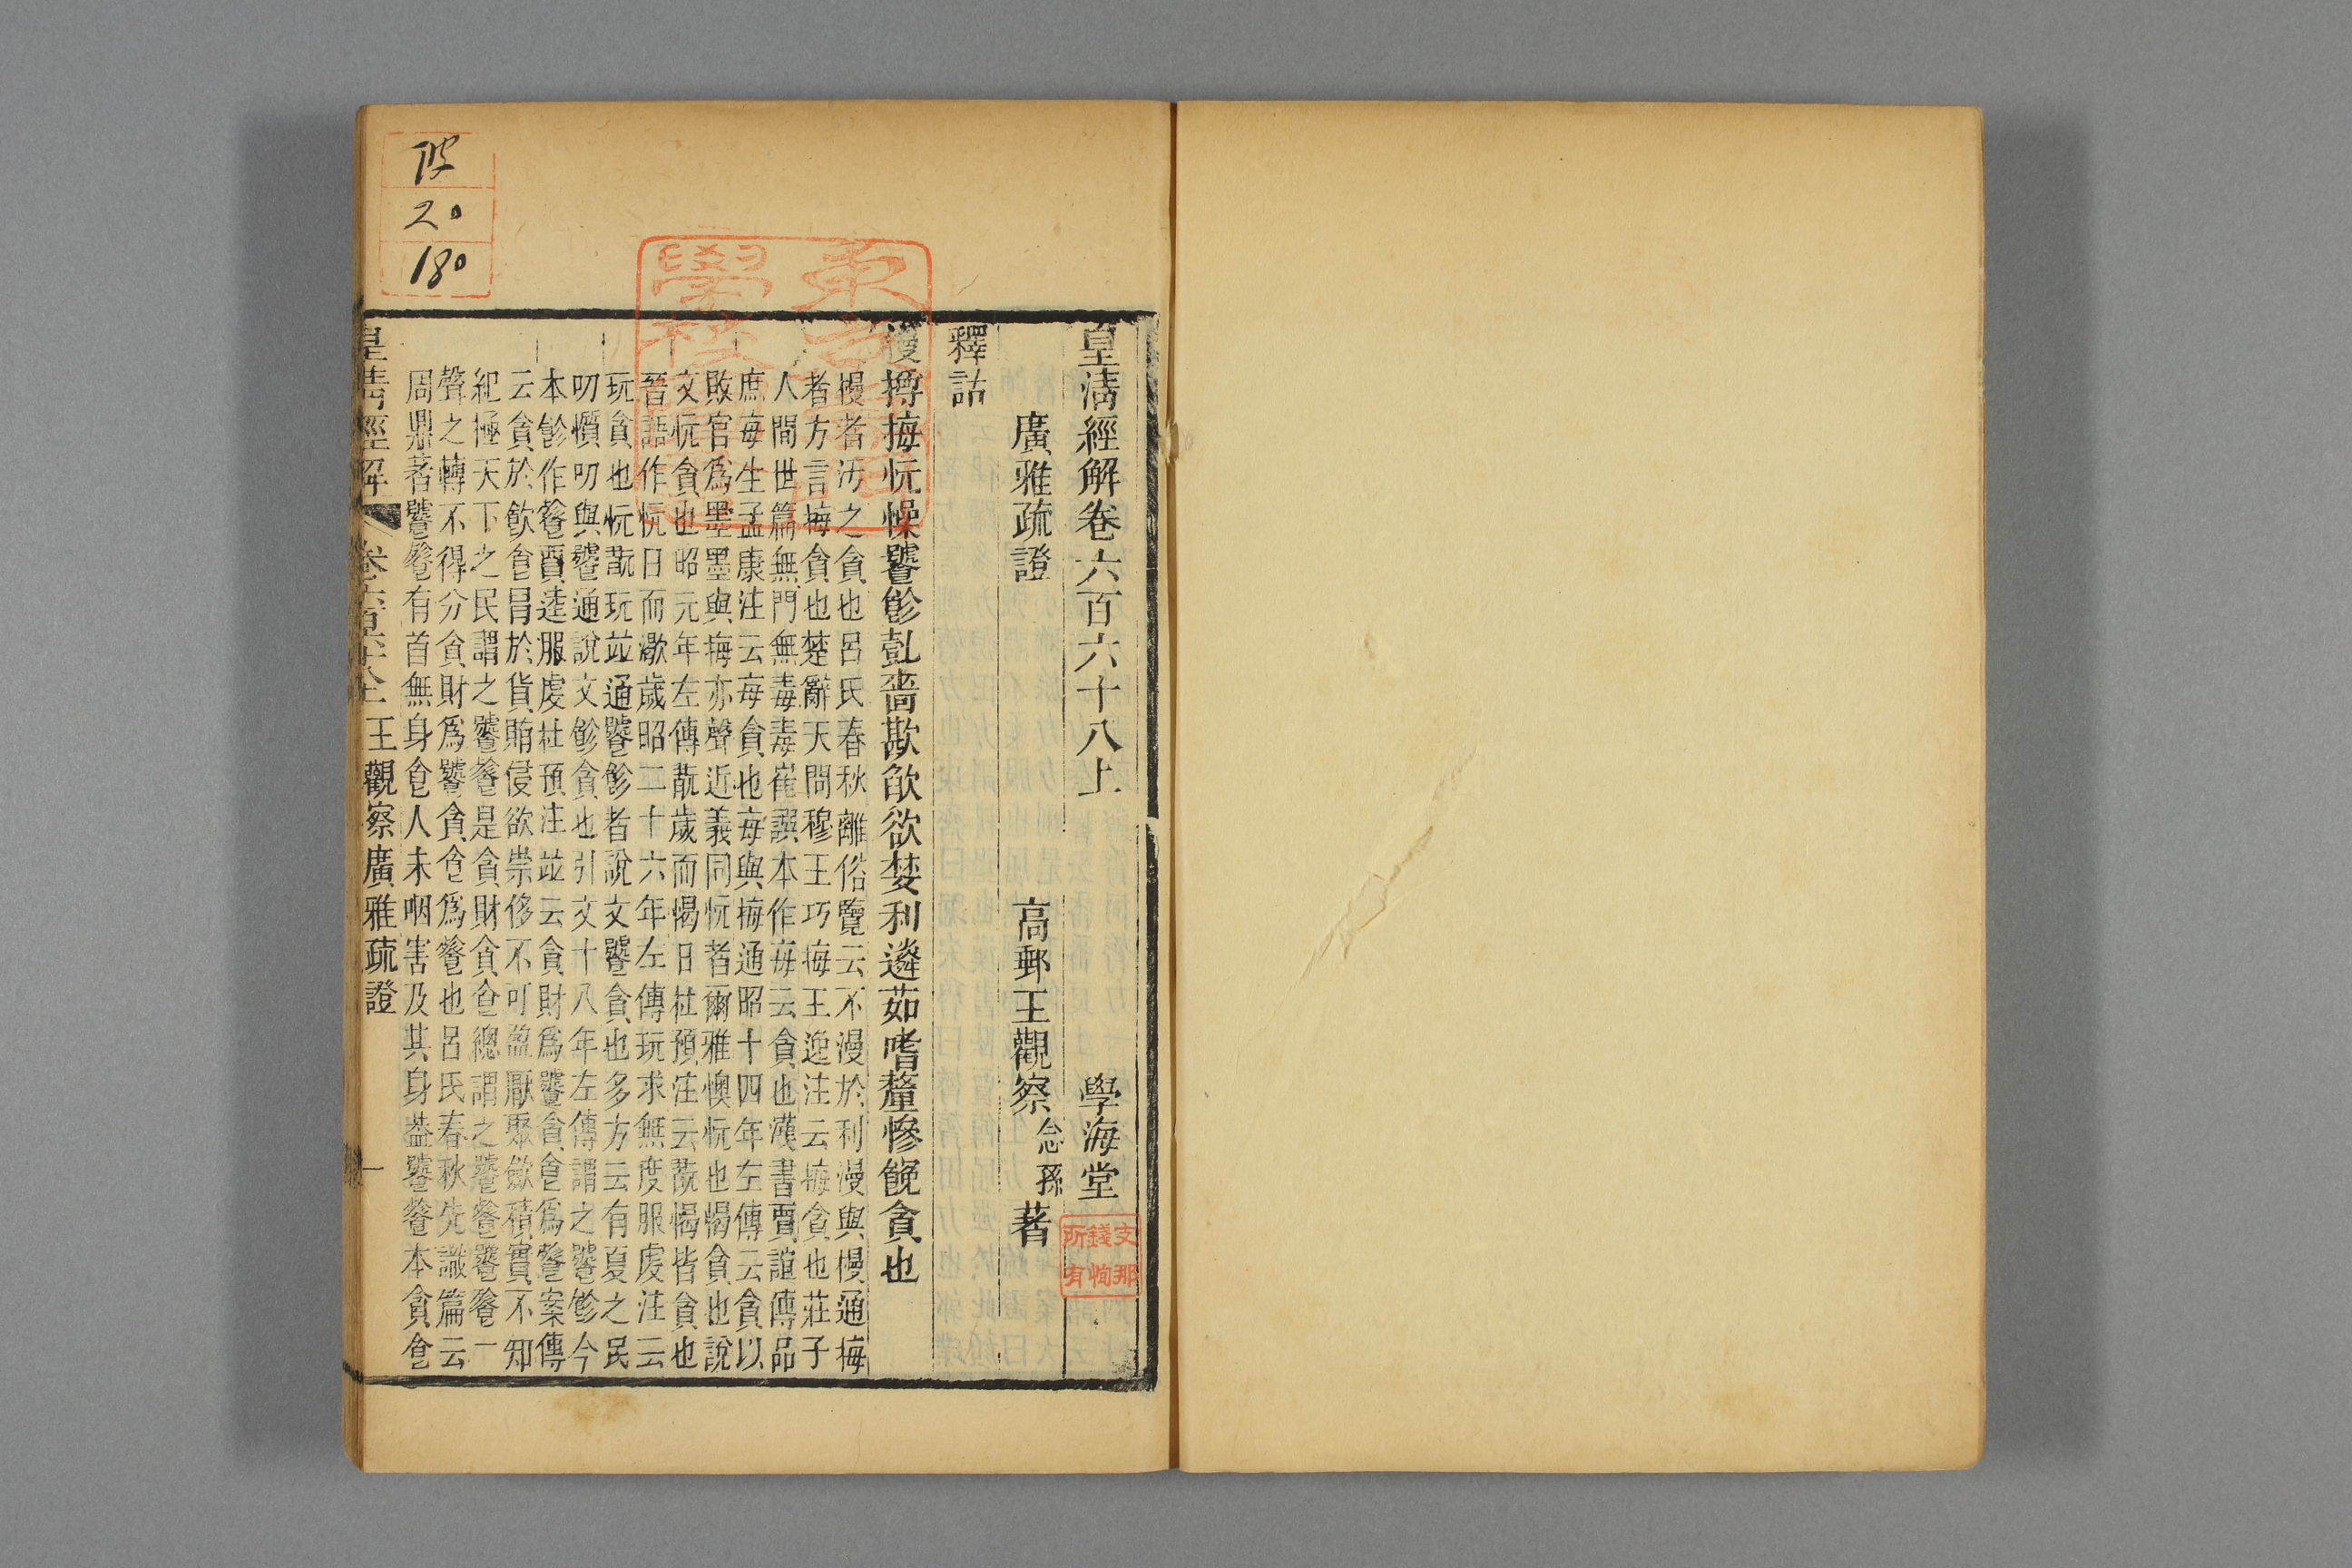 皇清經解卷六百六十八上 學海堂
廣雅疏證 高郵王觀察念孫著
釋詁
撙挴忨懆饕飻㱿嗇欺欿欲婪利遴茹嗜釐慘餽貪也
㮟者汚之貪也呂氏春秋離俗覽云不漫於利漫與㮟通挴
者方言挴貪也楚辭天問穆王巧挴王逸注云挴貪也莊子
人間世篇無門無毒毒崔譔本作每云貪也漢書賈誼傳品
庶每生孟康注云每貪也每與挴通昭十四年左傳云貪以
敗官爲墨墨與挴亦聲近義同忨者爾雅懊忨也愒貪也說
文忨貪也昭元年左傳翫歲而愒日杜預注云翫愒皆貪也
晉語作忨日而㵣歲昭二十六年左傳玩求無度服虔注云
玩貪也忨翫玩竝通饕飻者說文饕貪也多方云有夏之民
叨懫叨與饕通說文飻貪也引文十八年左傳謂之饕飻今
本飻作餮賈逵服虔杜預注竝云貪財爲饕貪食爲餮案傳
云貪於飲食冒於貨賄侵欲崇侈不可盈厭聚斂積實不知
紀極天下之民謂之饕餮是貪財貪食總謂之饕餮饕餮一
聲之轉不得分貪財爲饕貪食爲餮也呂氏春秋先識篇云
周鼎著饕餮有首無身食人未咽害及其身葢饕餮本貪食
皇清經解 卷六百六十八上 王觀察廣雅疏證 一
支那
錢恂
所有
20
180